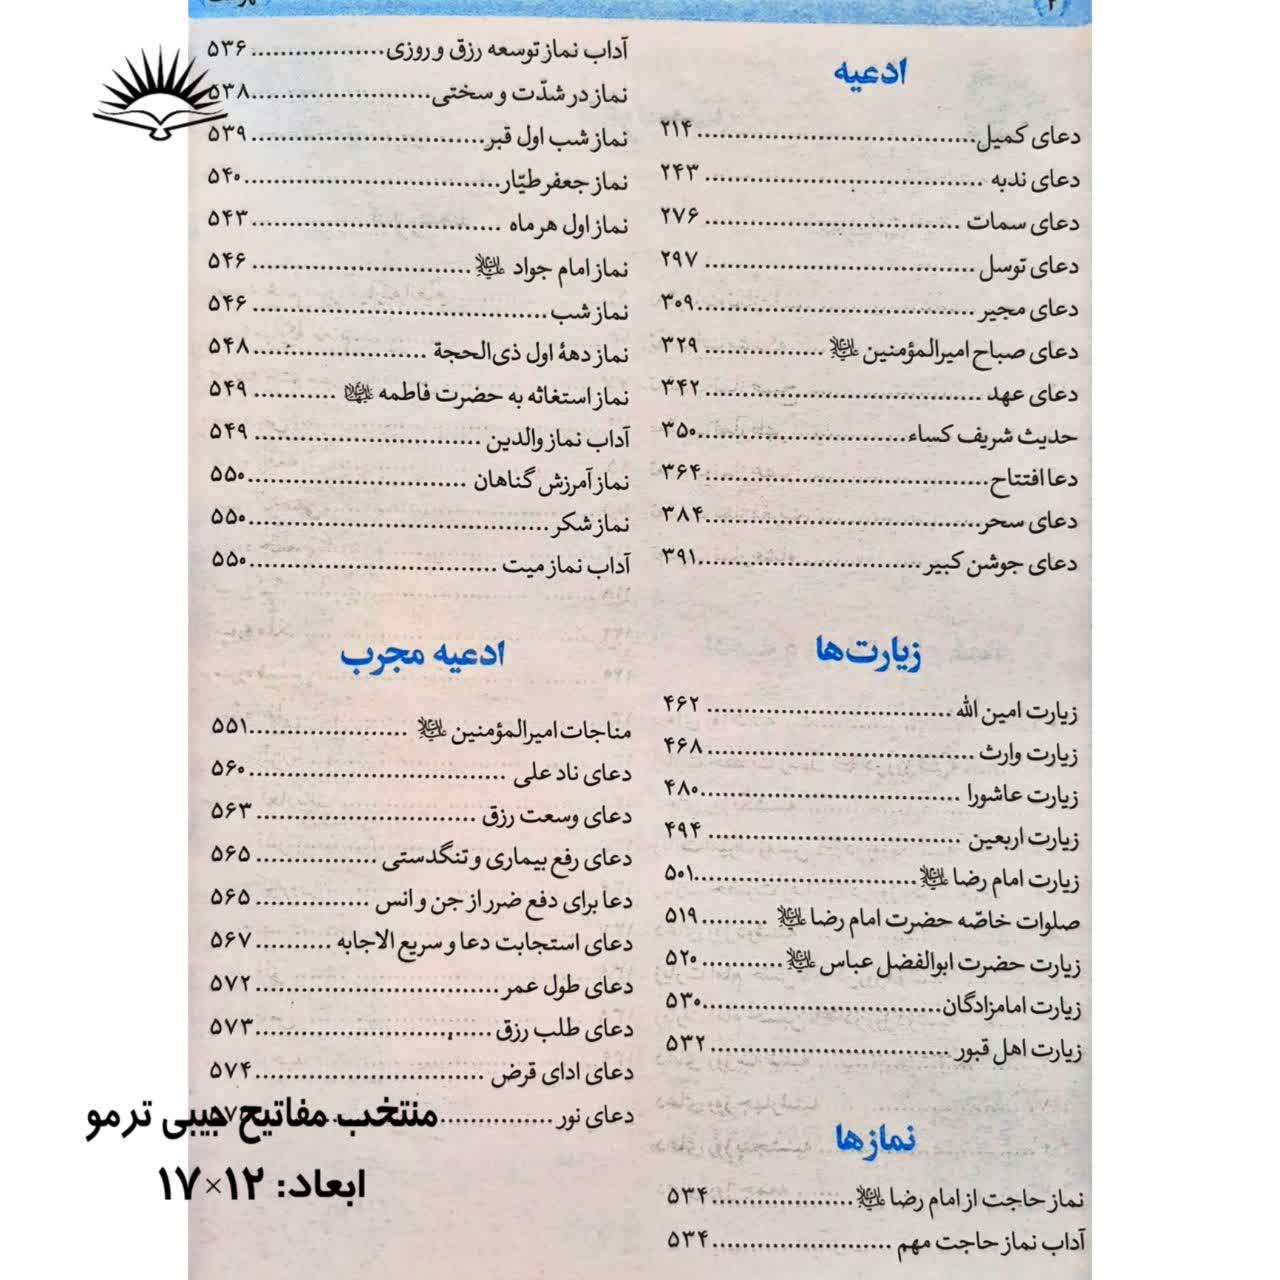 فهرست
۲
ادعیه
دعای کمیل ........ ۲۱۴
دعای ندبه ........ ۲۴۳
دعای سمات ........ ۲۷۶
دعای توسل ........ ۲۹۷
دعای مجیر ........ ۳۰۹
دعای صباح امیرالمؤمنین علیه‌السلام ........ ۳۲۹
دعای عهد ........ ۳۴۲
حدیث شریف کساء ........ ۳۵۰
دعا افتتاح ........ ۳۶۴
دعای سحر ........ ۳۸۴
دعای جوشن کبیر ........ ۳۹۱
زیارت‌ها
زیارت امین الله ........ ۴۶۲
زیارت وارث ........ ۴۶۸
زیارت عاشورا ........ ۴۸۰
زیارت اربعین ........ ۴۹۴
زیارت امام رضا علیه‌السلام ........ ۵۰۱
صلوات خاصّه حضرت امام رضا علیه‌السلام ........ ۵۱۹
زیارت حضرت ابوالفضل عباس علیه‌السلام ........ ۵۲۰
زیارت امامزادگان ........ ۵۳۰
زیارت اهل قبور ........ ۵۳۲
نمازها
نماز حاجت از امام رضا علیه‌السلام ........ ۵۳۴
آداب نماز حاجت مهم ........ ۵۳۴
آداب نماز توسعه رزق و روزی ........ ۵۳۶
نماز در شدّت و سختی ........ ۵۳۸
نماز شب اول قبر ........ ۵۳۹
نماز جعفر طیّار ........ ۵۴۰
نماز اول هر ماه ........ ۵۴۳
نماز امام جواد علیه‌السلام ........ ۵۴۶
نماز شب ........ ۵۴۶
نماز دههٔ اول ذی‌الحجة ........ ۵۴۸
نماز استغاثه به حضرت فاطمه علیهاالسلام ........ ۵۴۹
آداب نماز والدین ........ ۵۴۹
نماز آمرزش گناهان ........ ۵۵۰
نماز شکر ........ ۵۵۰
آداب نماز میت ........ ۵۵۰
ادعیه مجرب
مناجات امیرالمؤمنین علیه‌السلام ........ ۵۵۱
دعای ناد علی ........ ۵۶۰
دعای وسعت رزق ........ ۵۶۳
دعای رفع بیماری و تنگدستی ........ ۵۶۵
دعا برای دفع ضرر از جن و انس ........ ۵۶۵
دعای استجابت دعا و سریع الاجابه ........ ۵۶۷
دعای طول عمر ........ ۵۷۲
دعای طلب رزق ........ ۵۷۳
دعای ادای قرض ........ ۵۷۴
دعای نور ........
منتخب مفاتیح جیبی ترمو
ابعاد: ۱۲×۱۷